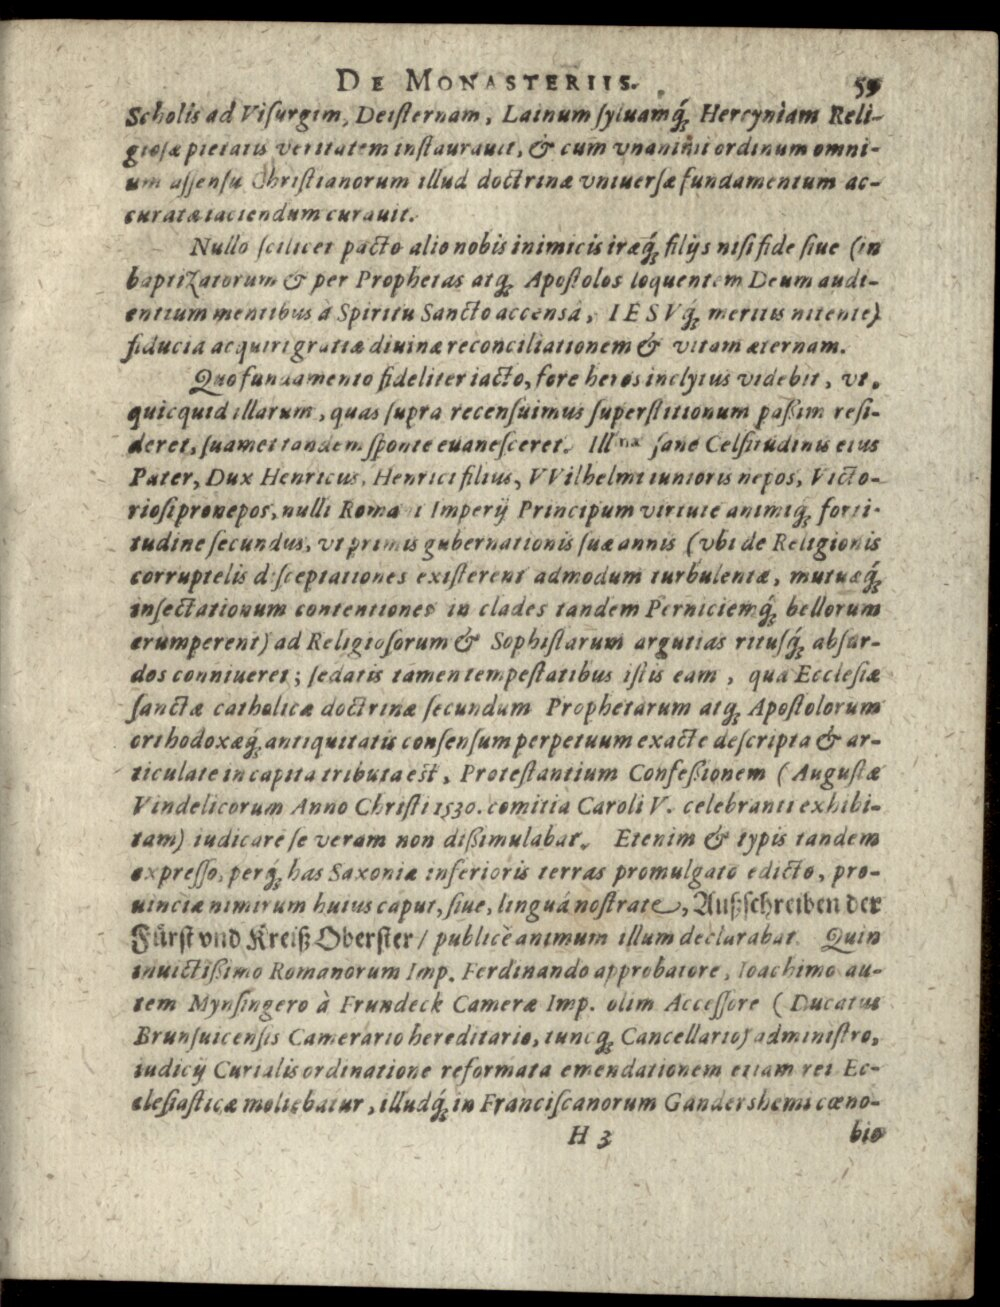 DE MONASTERIIS. 59
Scholis ad Viſurgim, Deiſternam, Lainum ſyluamq́; Hercyniam Reli-
gioſæ pietatis veritatem inſtaurauit, & cum vnanimi ordinum omni-
um aſſenſu Chriſtianorum illud doctrinæ vniuerſæ fundamentum ac-
curatæ iaciendum curauit.
Nullo ſcilicet pacto alio nobis inimicis iræq́; filijs niſi fide ſiue (in
baptizatorum & per Prophetas atq; Apoſtolos loquentem Deum audi-
entium mentibus à Spiritu Sancto accensâ, IESVq́; meritis nitente)
fiducia acquiri gratiæ diuinæ reconciliationem & vitam æternam.
Quo fundamento fideliter iacto, fore heros inclytus videbit, vt,
quicquid illarum, quas ſupra recenſuimus ſuperſtitionum paßim reſi-
deret, ſuamet tandem ſponte euaneſceret. Illᵐᵃ ſane Celſitudinis eius
Pater, Dux Henricus, Henrici filius, VVilhelmi iunioris nepos, Victo-
rioſi pronepos, nulli Romani Imperij Principum virtute animiq́; forti-
tudine ſecundus, vt primis gubernationis ſuæ annis (vbi de Religionis
corruptelis diſceptationes exiſterent admodum turbulentæ, mutuæq́;
inſectationum contentiones in clades tandem Perniciemq́; bellorum
erumperent) ad Religioſorum & Sophiſtarum argutias rituſq́; abſur-
dos conniueret; ſedatis tamen tempeſtatibus iſtis eam, qua Eccleſiæ
ſanctæ catholicæ doctrinæ ſecundum Prophetarum atq; Apoſtolorum
orthodoxæq́; antiquitatis conſenſum perpetuum exacte deſcripta & ar-
ticulate in capita tributa eſt, Proteſtantium Confeßionem (Auguſtæ
Vindelicorum Anno Chriſti 1530. comitia Caroli V. celebranti exhibi-
tam) iudicare ſe veram non dißimulabat. Etenim & typis tandem
expreſſo, perq́; has Saxoniæ inferioris terras promulgato edicto, pro-
uinciæ nimirum huius caput, ſiue, linguâ noſtrate, Außſchreiben der
Fürſt vnd Kreiß Oberſter / publicè animum illum declarabat. Quin
inuictißimo Romanorum Imp. Ferdinando approbatore, Ioachimo au-
tem Mynſingero à Frundeck Cameræ Imp. olim Acceſſore (Ducatus
Brunſuicenſis Camerario hereditario, tuncq; Cancellario) adminiſtro,
iudicij Curialis ordinatione reformata emendationem etiam rei Ec-
cleſiaſticæ moliebatur, illudq́; in Franciſcanorum Gandershemi cœno-
H 3 bio